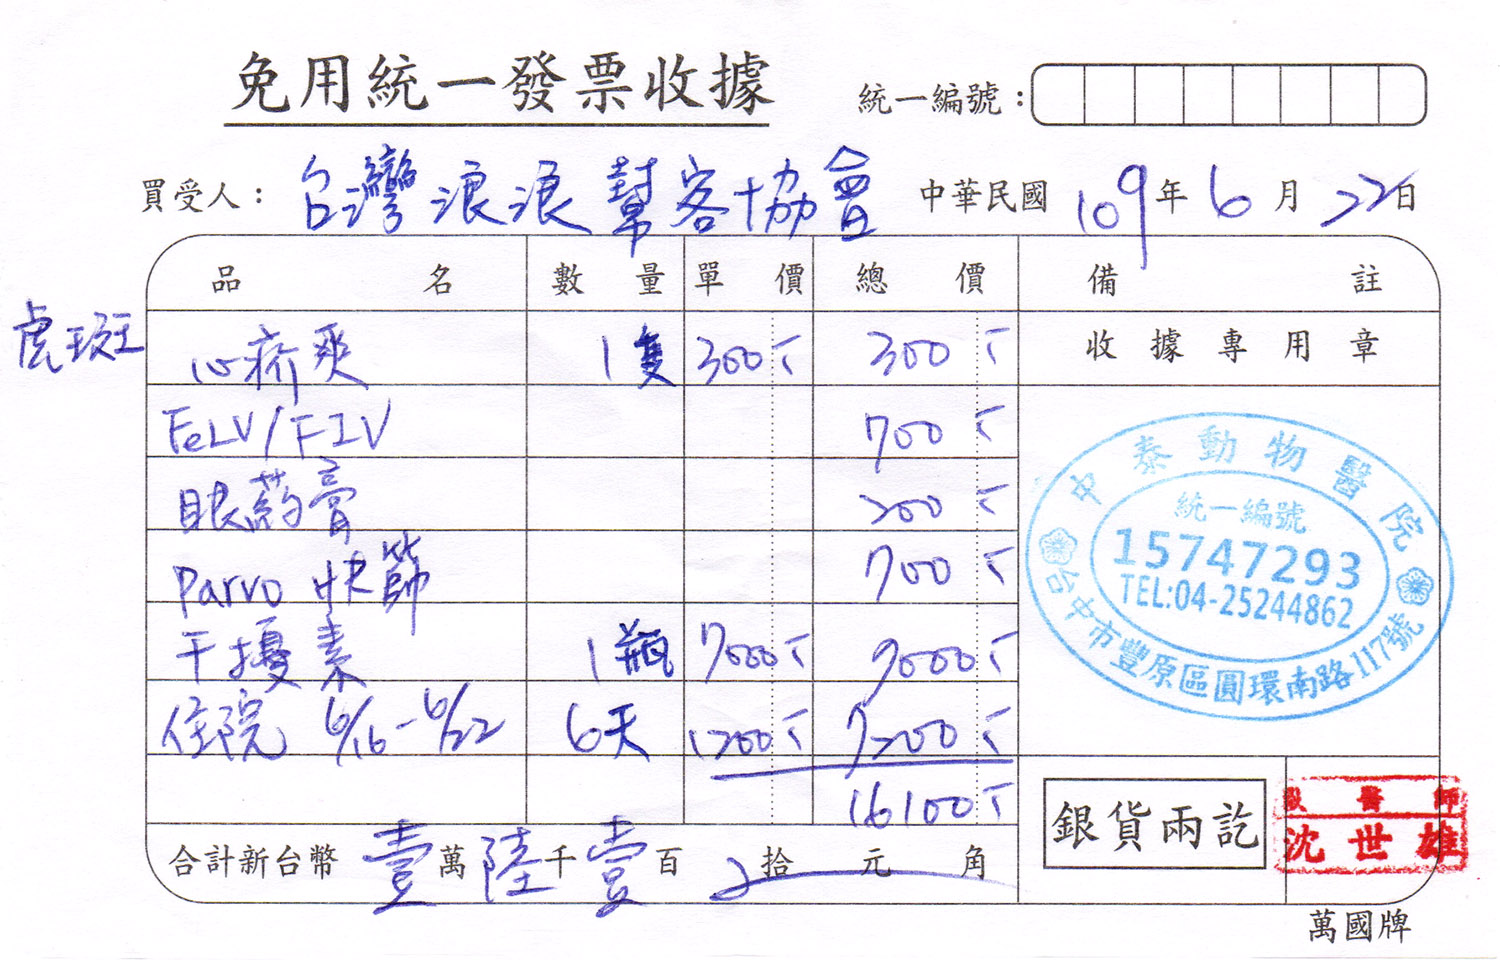 免用統一發票收據
統一編號：
買受人：台灣浪浪幫客協會 中華民國109年6月22日
品名 數量 單價 總價 備註
虎斑 心疥爽 1隻 300 300 收據專用章
FeLV/FIV 700
眼葯膏 200
Parvo 快篩 700
干擾素 1瓶 7000 7000
住院 6/16-6/22 6天 1200 7200
16100
合計新台幣 壹萬陸千壹百 拾 元 角
銀貨兩訖
中泰動物醫院
統一編號
15747293
TEL:04-25244862
台中市豐原區圓環南路117號
獸醫師
沈世雄
萬國牌